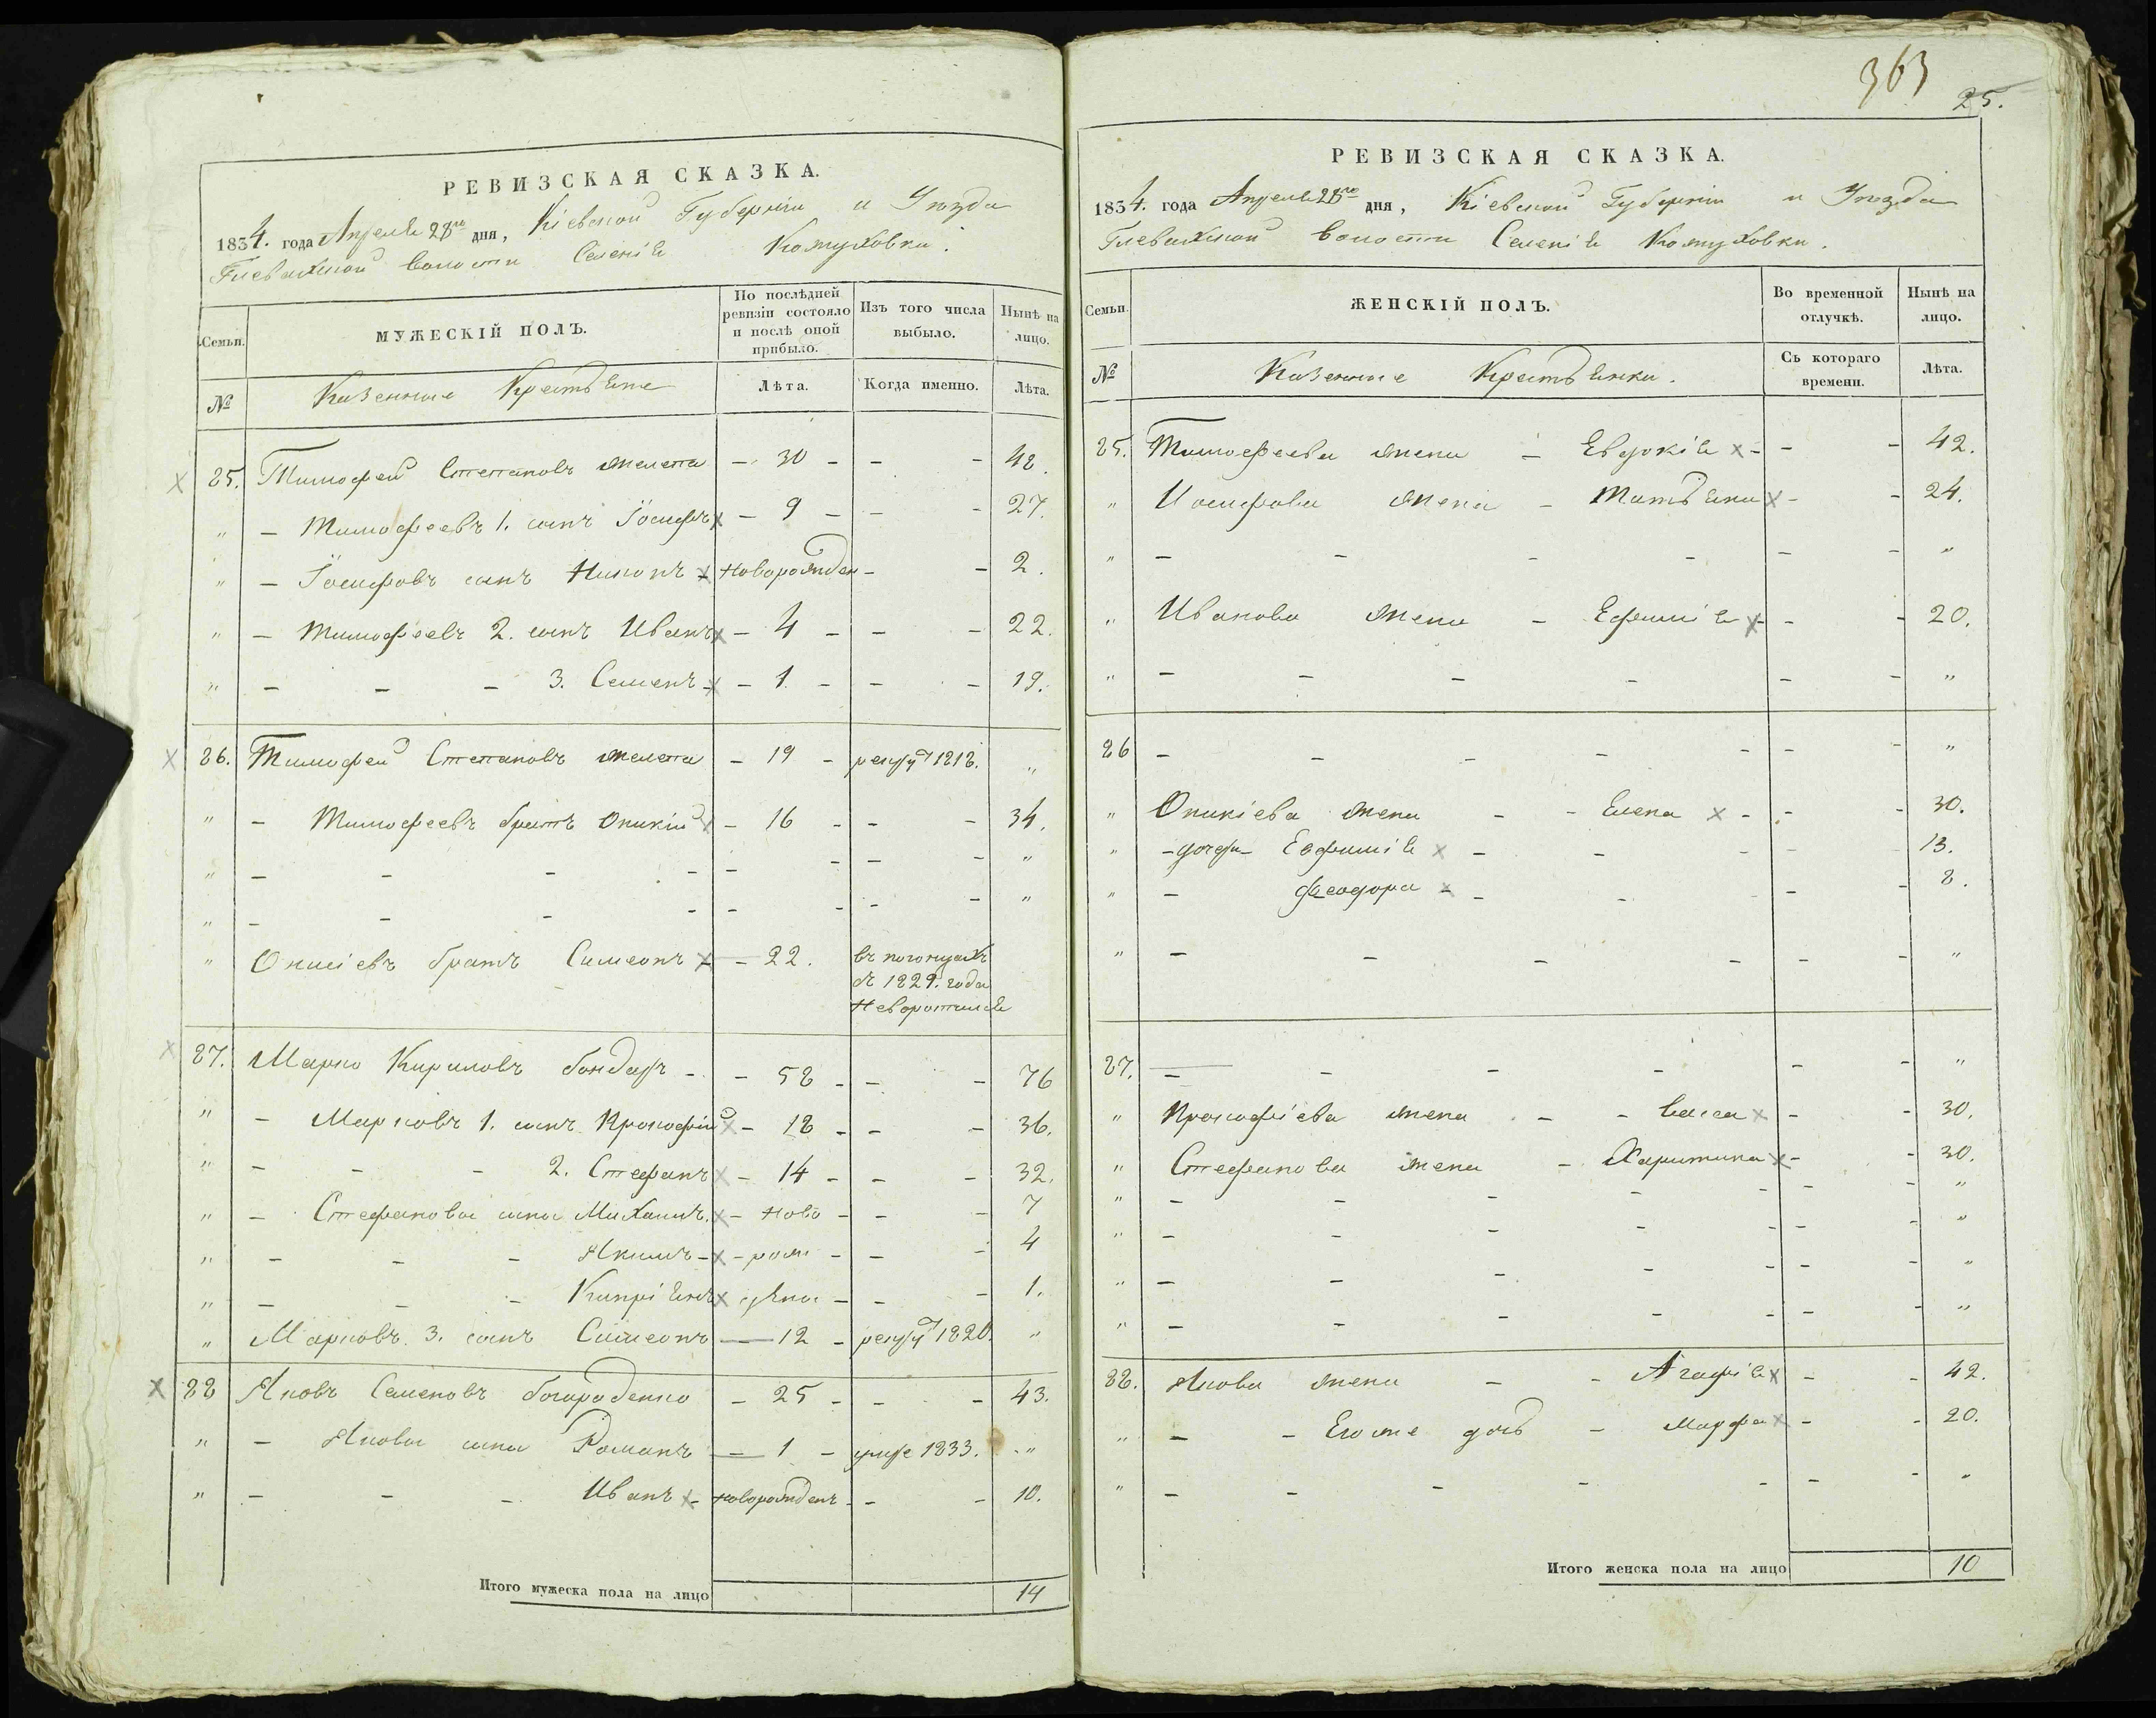 РЕВИЗСКАЯ СКАЗКА.
1834. года Апреля 28го дня, Кіевской Губерніи и Уѣзда
Глевахской Волости Селенія Кожуховки.
Семьи.
МУЖЕСКІЙ ПОЛЪ.
По послѣдней ревизіи состояло и послѣ оной прибыло.
Изъ того числа выбыло.
Нынѣ на лицо.
№
Казенные Крестьяне
Лѣта.
Когда именно.
Лѣта.
25. Тимофей Степановъ - 30 - - - 48.
" - Тимофеевъ 1. сынъ Іосифъ - 9 - - - 27.
" - Іосифовъ сынъ Никонъ - новорожден - - 2.
" - Тимофеевъ 2. сынъ Иванъ - 4 - - - 22.
" - - - 3. Семенъ - - 1. - - - 19.
26. Тимофей Степановъ - 19 - рекру 1818. "
" - Тимофеевъ братъ Оникій - 16 - - - 34.
" - - - - - - - - "
" - - - - - - - - "
" Оникіевъ братъ Симеонъ - - 22. въ погонцахъ
съ 1829. года
Неворотился
27. Марко Кириловъ бондаръ - - 58 - - - 76
" - Марковъ 1. сынъ Прокофій - 18 - - - 36.
" - - - 2. Стефанъ - 14 - - - 32.
" - Стефановы сыны Михаилъ. - ново - - - 7
" - - - Якимъ - - рож - - - 4
" - - - Кипріянъ дены - - - 1.
" Марковъ 3. сынъ Симеонъ - 12 - рекру 1820. "
28 Яковъ Семеновъ богороденко - 25 - - - 43.
" - Яковы сыны Романъ - 1 - умре 1833. - "
" - - - Иванъ - новорожденъ - - 10.
Итого мужеска пола на лицо 14
363
25.
РЕВИЗСКАЯ СКАЗКА.
1834. года Апреля 28го дня, Кіевской Губерніи и Уѣзда
Глевахской Волости Селенія Кожуховки.
Семьи.
ЖЕНСКІЙ ПОЛЪ.
Во временной отлучкѣ.
Нынѣ на лицо.
№
Казенные Крестьянки.
Съ котораго времени.
Лѣта.
25. Тимофеева жена - Евдокія - - - 42.
" Иосифова жена - Татьяна - - 24.
" - - - - - - "
" Иванова жена - Ефимія - - - 20.
" - - - - - - "
26 - - - - - - "
" Оникіева жена - - Елена - - - 30.
" - дочери - Евфимія - - - - 13.
" - Феодора - - - - - 8.
" - - - - - - "
27. - - - - - - "
" Прокофіева жена - - Васса - - 30.
" Стефанова жена - Харитина - - 30.
" - - - - - - - "
" - - - - - - - "
" - - - - - - - "
" - - - - - - - "
28. Якова жена - - Агафія - - 42.
" - - Его же дочь - Марфа - - 20.
" - - - - - - - "
Итого женска пола на лицо 10